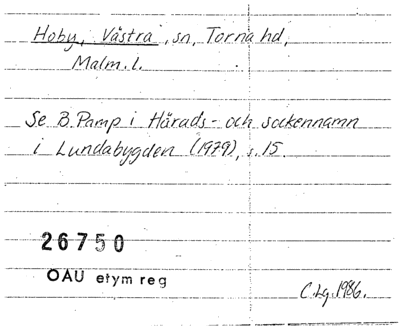 Hoby, Västra, sn, Torna hd,
Malm. l.
Se B. Pamp i Härads- och sockennamn
i Lundabygden (1979), s. 15.
26750
OAU etym reg
C. Lg. 1986.